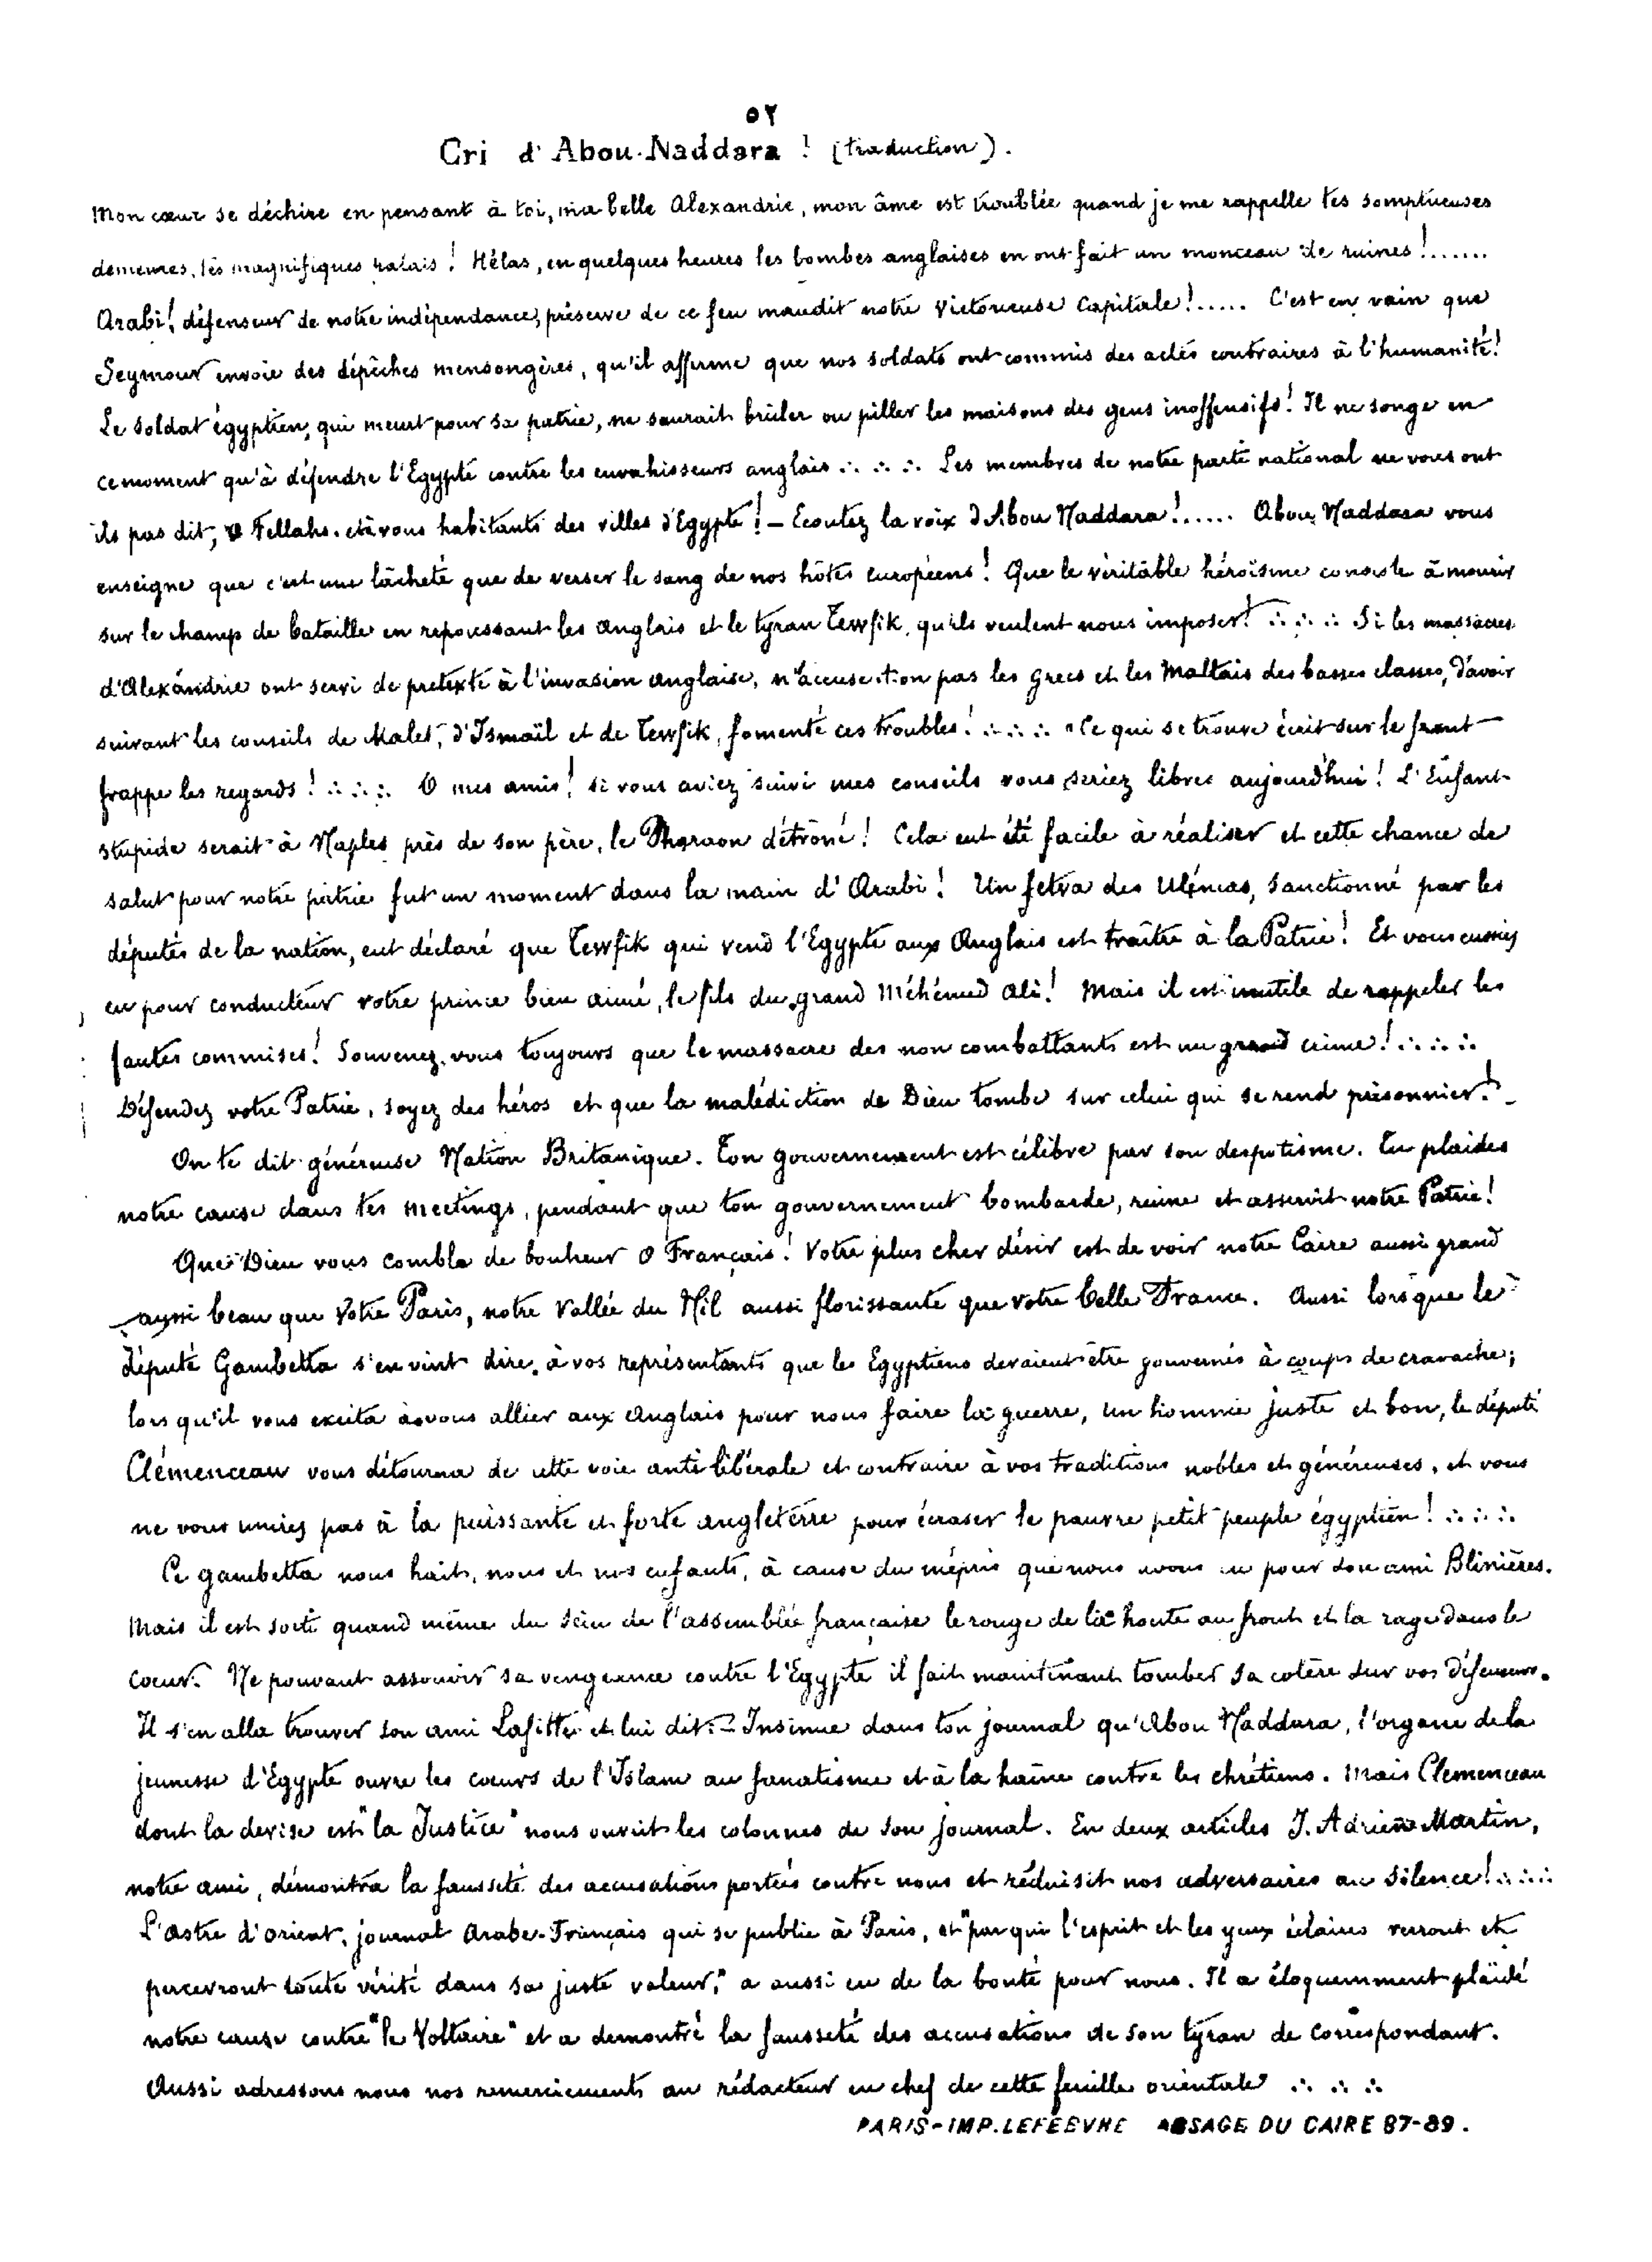 ٥٢
Cri d'Abou-Naddara ! (traduction).
Mon cœur se déchire en pensant à toi, ma belle Alexandrie, mon âme est troublée quand je me rappelle tes somptueuses
demeures, tes magnifiques palais ! Hélas, en quelques heures les bombes anglaises en ont fait un monceau de ruines !.......
Arabi ! défenseur de notre indépendance, préserve de ce feu maudit notre victorieuse Capitale !..... C'est en vain que
Seymour envoie des dépêches mensongères, qu'il affirme que nos soldats ont commis des actes contraires à l'humanité !
Le soldat égyptien, qui meurt pour sa patrie, ne saurait brûler ou piller les maisons des gens inoffensifs ! Il ne songe en
ce moment qu'à défendre l'Egypte contre les envahisseurs anglais ∴ ∴ ∴ Les membres de notre parti national ne vous ont
ils pas dit, O Fellahs, et à vous habitants des villes d'Egypte ! — Ecoutez la voix d'Abou Naddara !...... Abou Naddara vous
enseigne que c'est une lâcheté que de verser le sang de nos hôtes européens ! Que le véritable héroïsme consiste à mourir
sur le champ de bataille en repoussant les anglais et le tyran Tewfik, qu'ils veulent nous imposer ! ∴ ∴ ∴ Si les massacres
d'Alexandrie ont servi de prétexte à l'invasion anglaise, n'accuse-t-on pas les grecs et les Maltais des basses classes, d'avoir
suivant les conseils de Malet, d'Ismaïl et de Tewfik, fomenté ces troubles ! ∴ ∴ ∴ Ce qui se trouve écrit sur le front
frappe les regards ! ∴ ∴ ∴ O mes amis ! si vous aviez suivi mes conseils vous seriez libres aujourd'hui ! L'Enfant
stupide serait à Naples près de son père, le Pharaon détrôné ! Cela eut été facile à réaliser et cette chance de
salut pour notre patrie fut un moment dans la main d'Arabi ! Un fetva des Ulémas, sanctionné par les
députés de la nation, eut déclaré que Tewfik qui vend l'Egypte aux Anglais est traître à la Patrie ! Et vous eussiez
eu pour conducteur votre prince bien aimé, le fils du grand Méhémed Ali ! Mais il est inutile de rappeler les
fautes commises ! Souvenez-vous toujours que le massacre des non combattants est un grand crime ! ∴ ∴ ∴
Défendez votre Patrie, soyez des héros et que la malédiction de Dieu tombe sur celui qui se rend prisonnier ! -
On te dit généreuse Nation Britanique. Ton gouvernement est célèbre par son despotisme. Tu plaides
notre cause dans tes meetings, pendant que ton gouvernement bombarde, ruine et asservit notre Patrie !
Que Dieu vous comble de bonheur O Français ! Votre plus cher désir est de voir notre Caire aussi grand
aussi beau que votre Paris, notre Vallée du Nil aussi florissante que votre belle France. Aussi lorsque le
député Gambetta s'en vint dire à vos représentants que les Egyptiens devaient être gouvernés à coups de cravache ;
lorsqu'il vous excita à vous allier aux anglais pour nous faire la guerre, un homme juste et bon, le député
Clémenceau vous détourna de cette voie anti libérale et contraire à vos traditions nobles et généreuses, et vous
ne vous unites pas à la puissante et forte angleterre pour écraser le pauvre petit peuple égyptien ! ∴ ∴ ∴
Ce gambetta nous hait, nous et nos enfants, à cause du mépris que nous avons eu pour son ami Blinières.
Mais il est sorti quand même du sein de l'assemblée française le rouge de la honte au front et la rage dans le
cœur. Ne pouvant assouvir sa vengeance contre l'Egypte il fait maintenant tomber sa colère sur vos défenseurs.
Il s'en alla trouver son ami Lafitte et lui dit : — Insinue dans ton journal qu'Abou Naddara, l'organe de la
jeunesse d'Egypte ouvre les cœurs de l'Islam au fanatisme et à la haine contre les chrétiens. Mais Clemenceau
dont la devise est "la Justice" nous ouvrit les colonnes de son journal. En deux articles J. Adrien Martin,
notre ami, démontra la fausseté des accusations portées contre nous et réduisit nos adversaires au silence ! ∴ ∴ ∴
L'astre d'orient, journal Arabe-Français qui se publie à Paris, et "par qui l'esprit et les yeux éclairés verront et
percevront toute vérité dans sa juste valeur," a aussi eu de la bonté pour nous. Il a éloquemment plaidé
notre cause contre "le Voltaire" et a demontré la fausseté des accusations de son tyran de correspondant.
Aussi adressons nous nos remerciements au rédacteur en chef de cette feuille orientale ∴ ∴ ∴
PARIS-IMP. LEFEBVRE PASSAGE DU CAIRE 87-89.